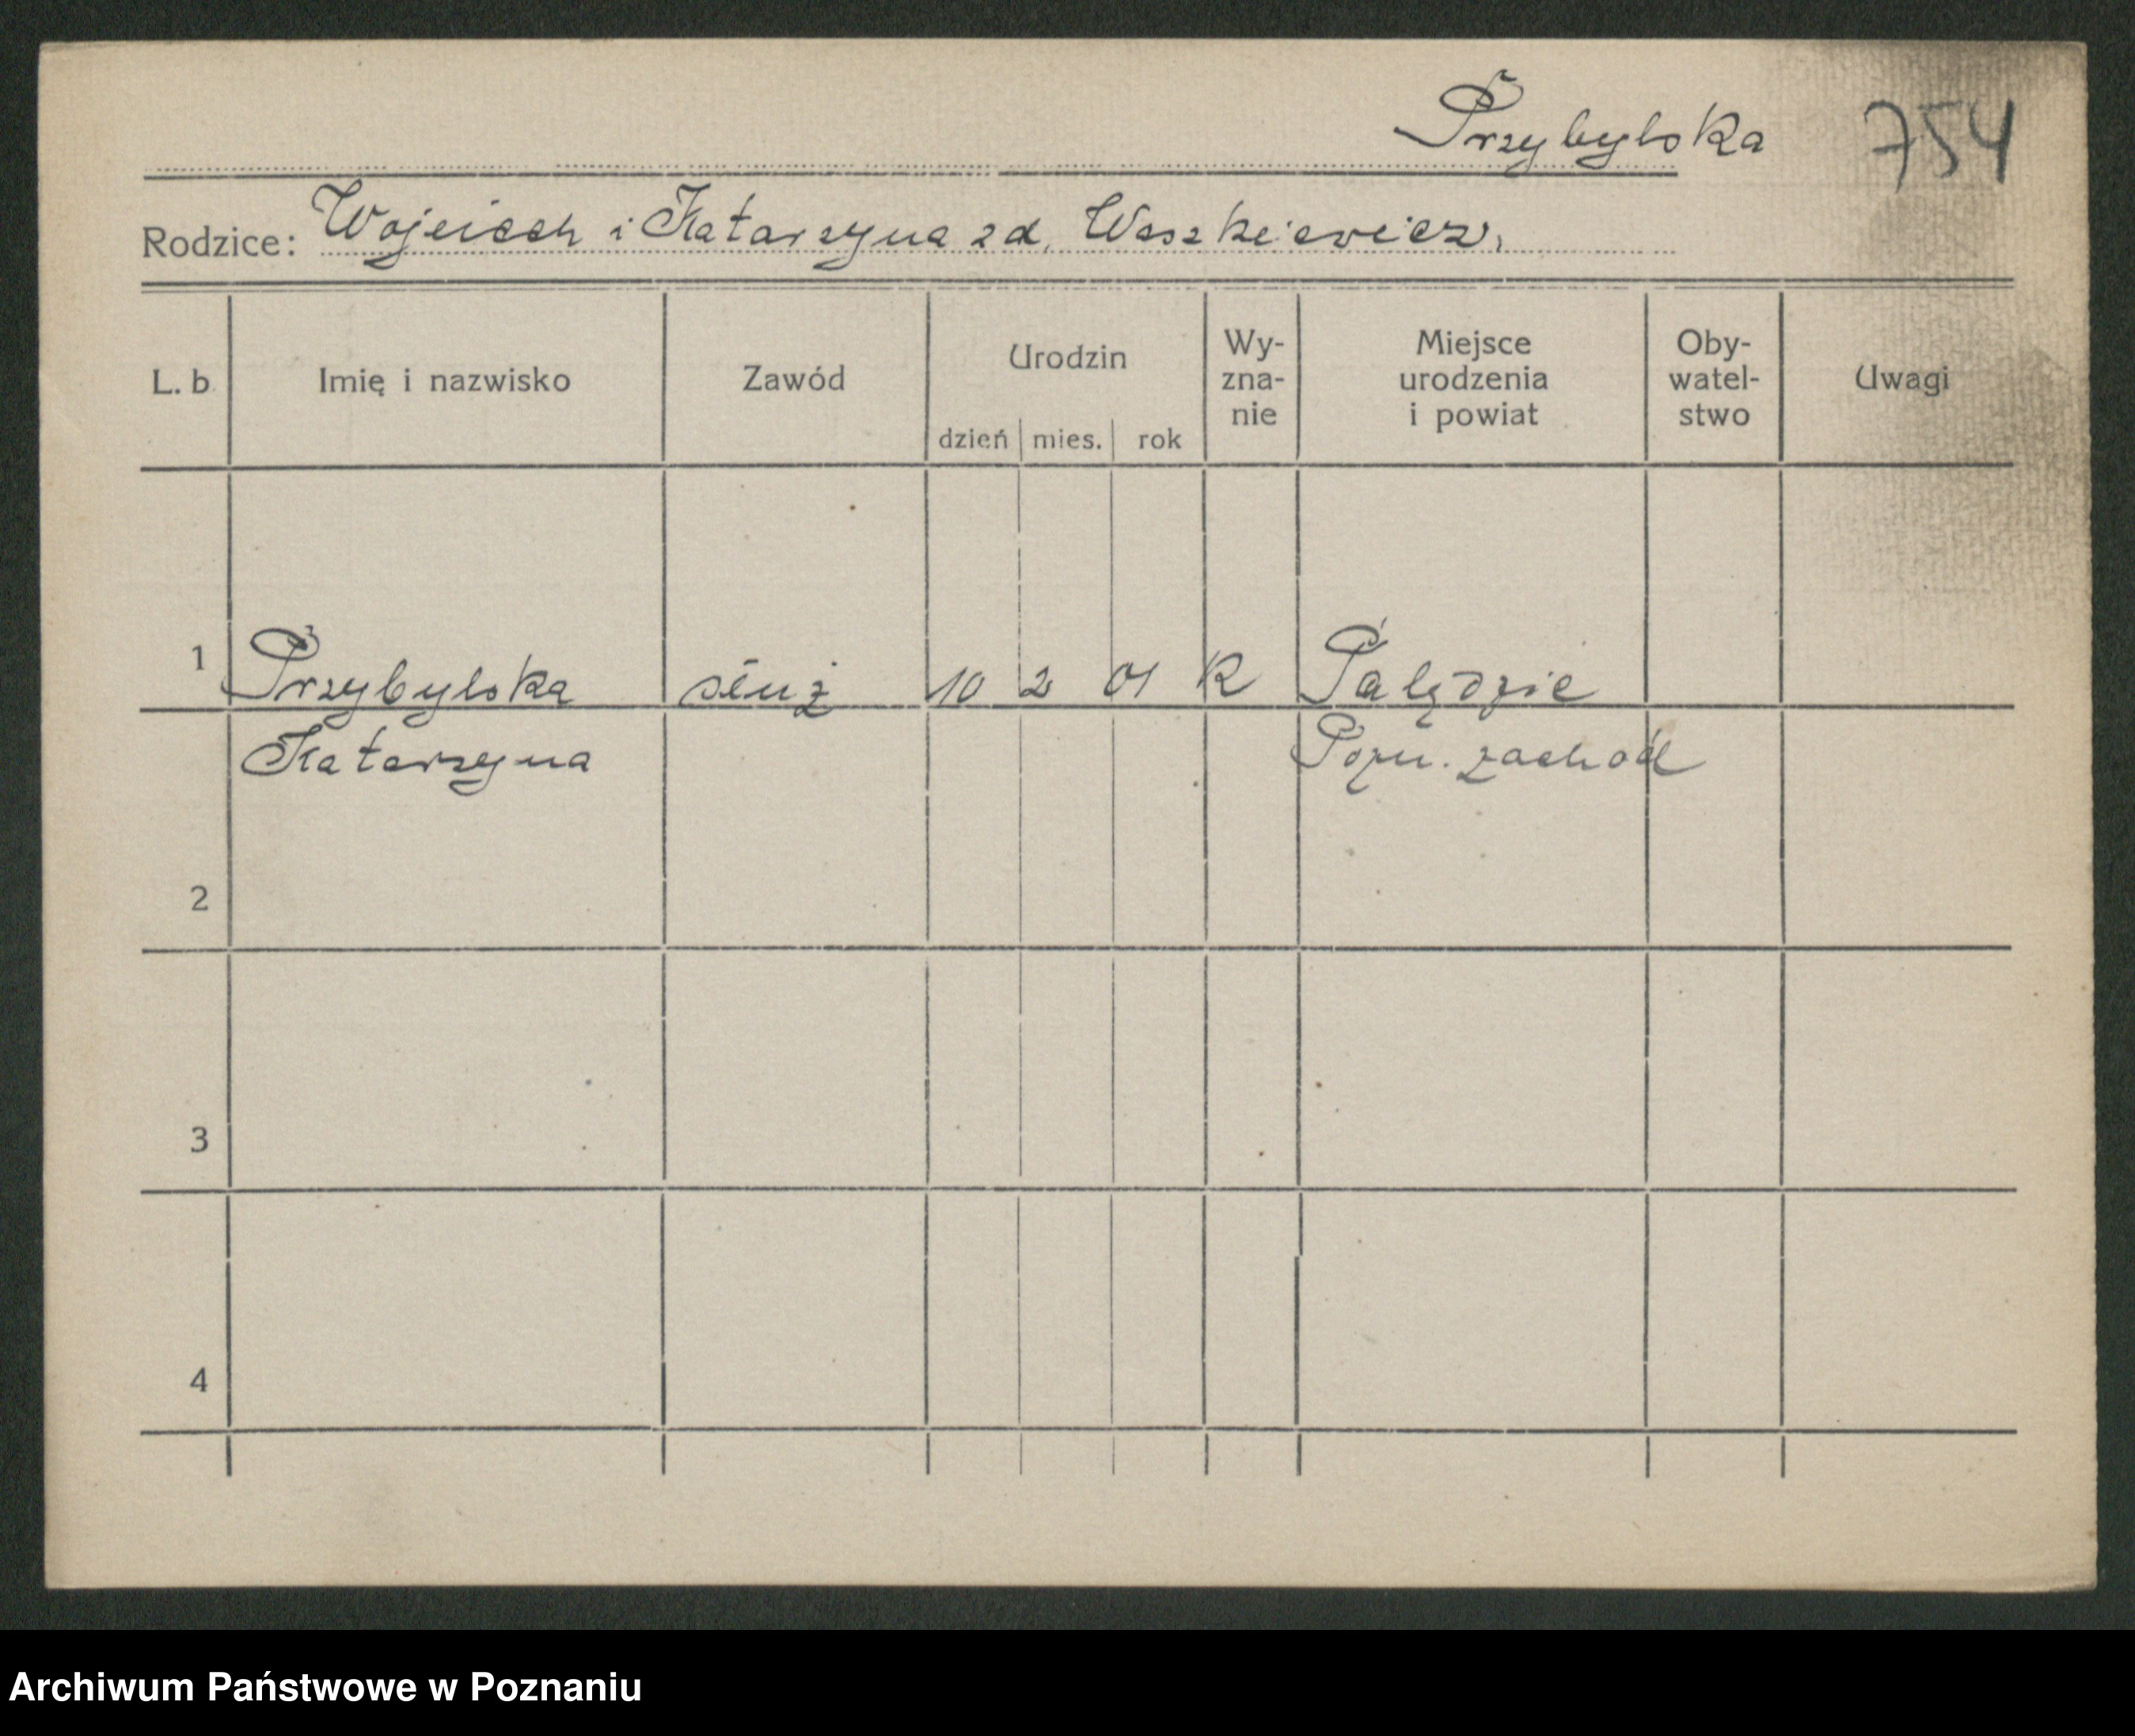 Przybylska 754
Rodzice: Wojciech i Katarzyna zd. Waszkiewicz,
L. b. Imię i nazwisko Zawód Urodzin dzień mies. rok Wy-zna-nie Miejsce urodzenia i powiat Oby-watel-stwo Uwagi
1 Przybylska służ 10 2 01 K Palędzie
Katarzyna Pozn. zachód
2
3
4
Archiwum Państwowe w Poznaniu